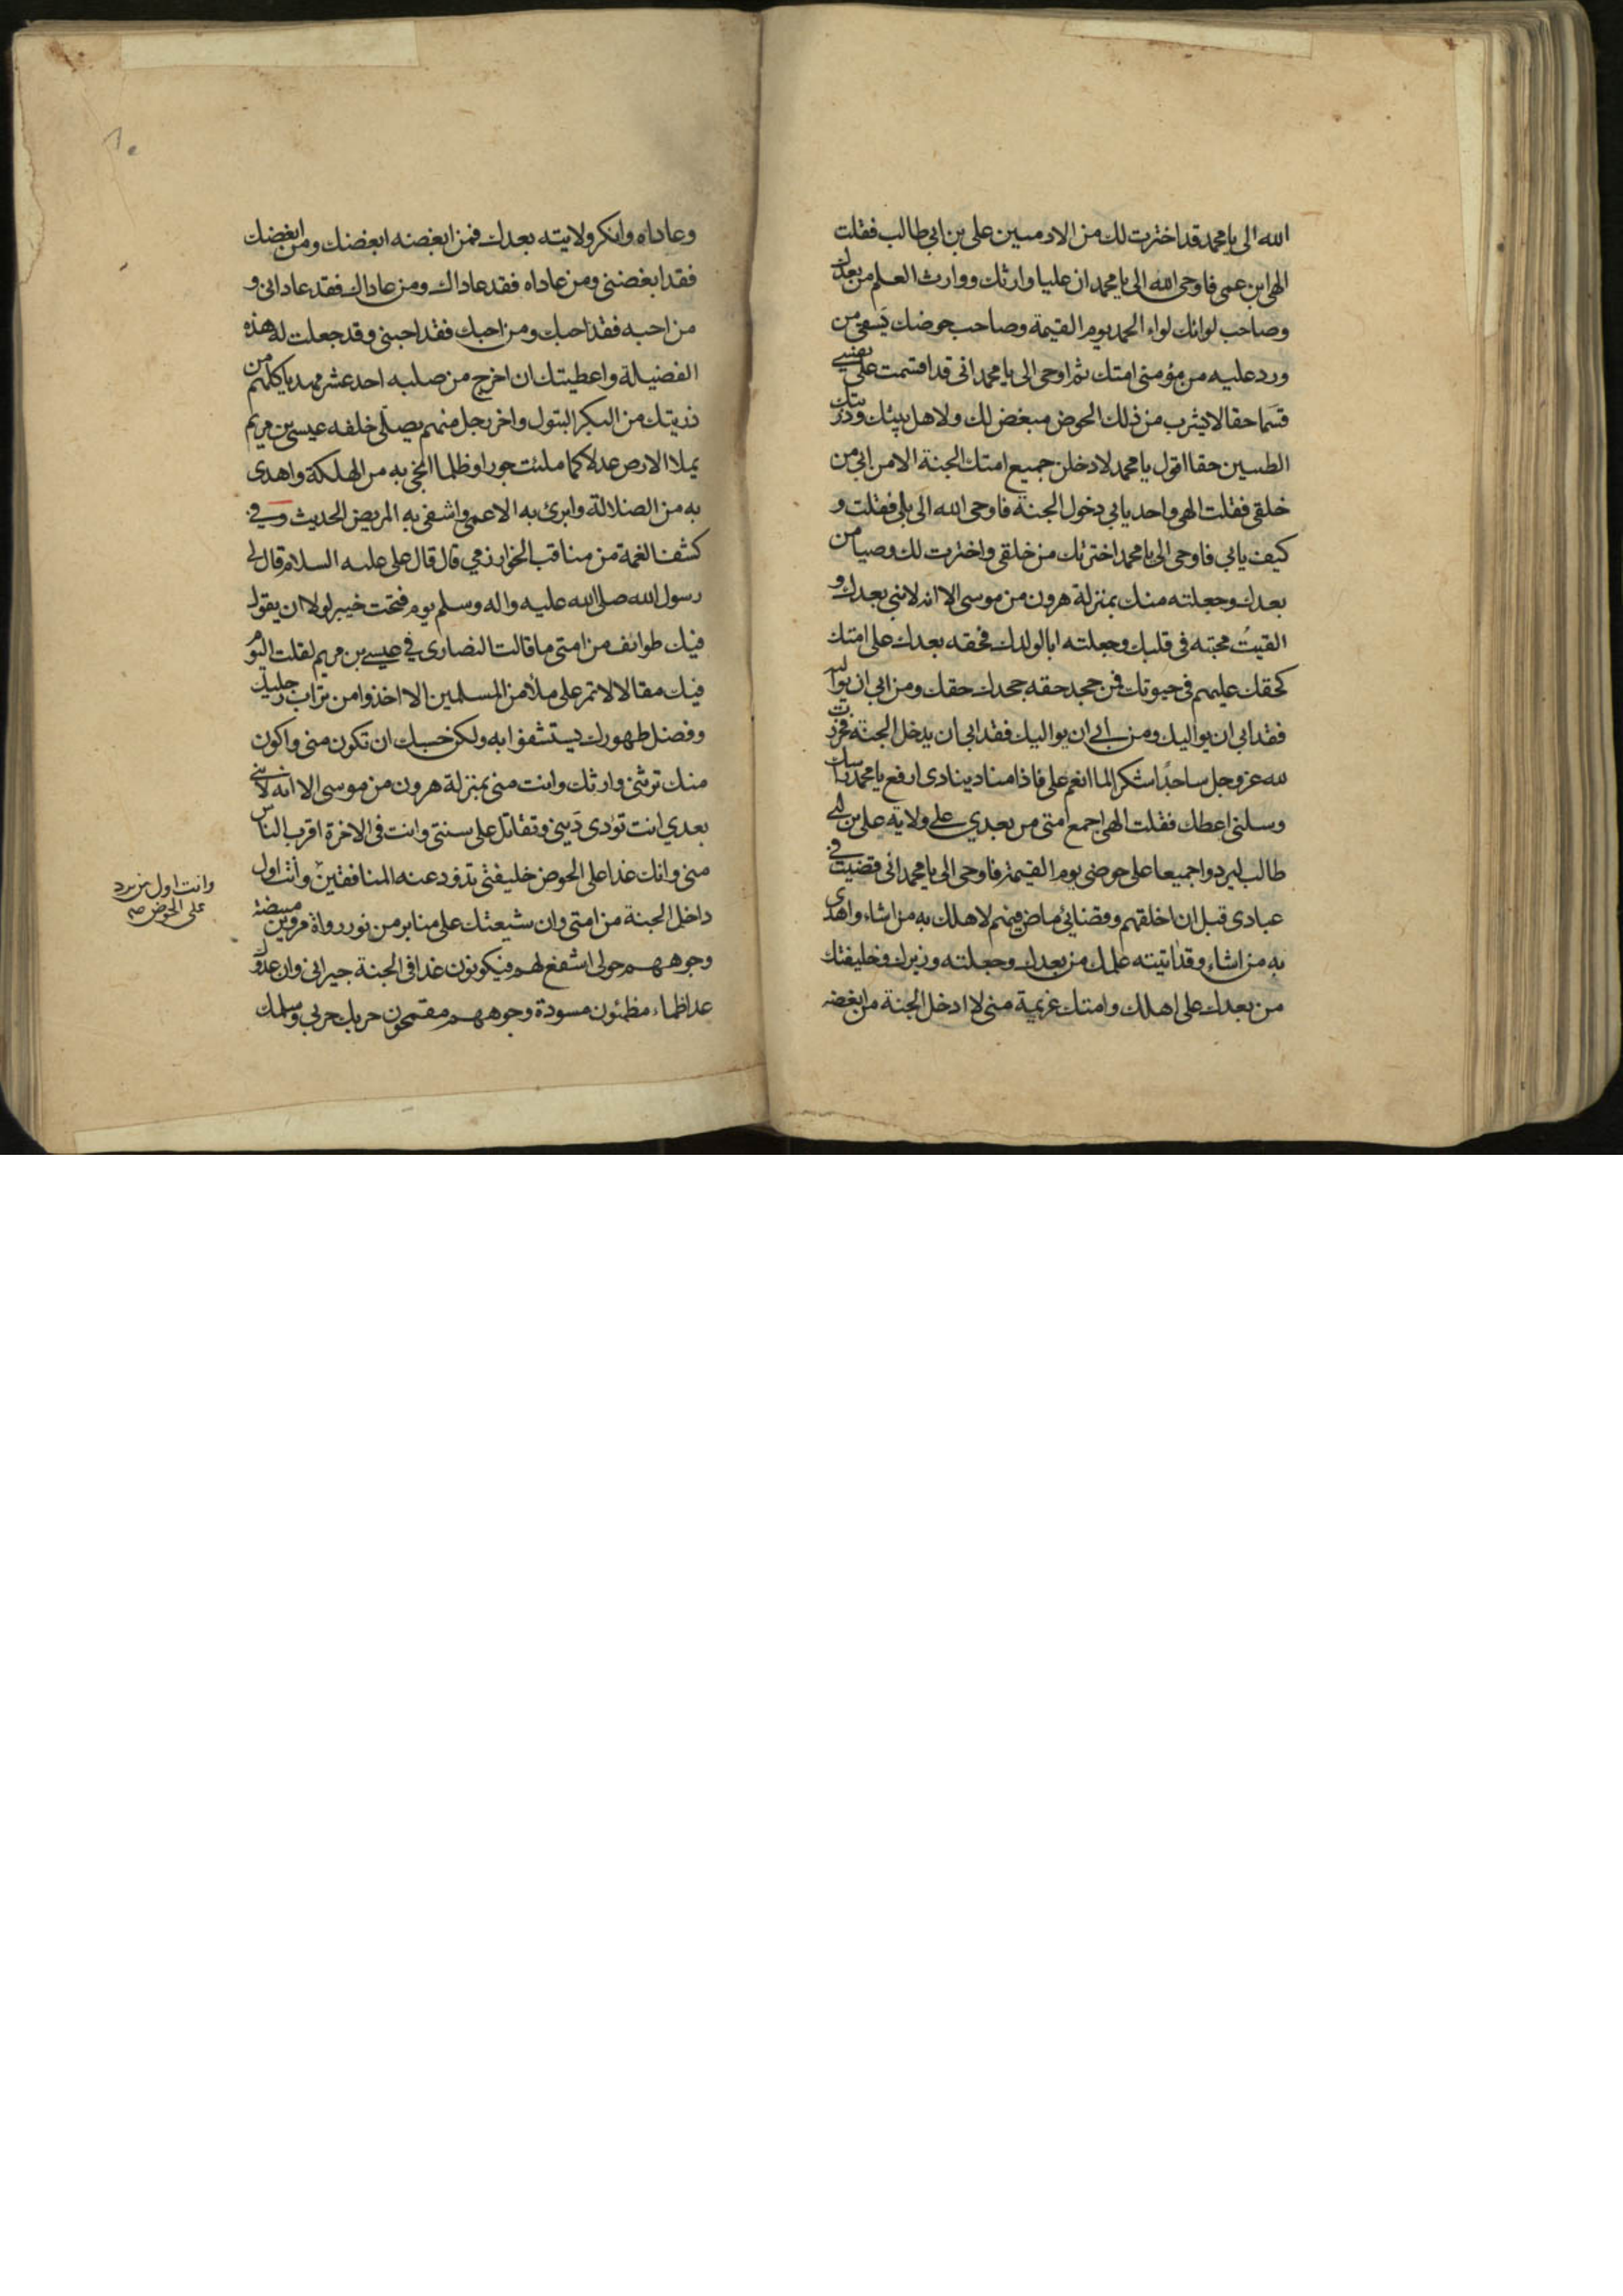 الله الى يا محمد قد اخترت لك من الادميين على بن ابى طالب فقلت
الهى ابن عمى فاوحى الله الى يا محمد ان عليا وارثك ووارث العلم من بعدك
وصاحب لوائك لواء الحمد يوم القيمة وصاحب حوضك يسقى من
ورد عليه من مؤمنى امتك ثم اوحى الى يا محمد انى قد اقسمت على نفسى
قسما حقا لا يشرب من ذلك الحوض مبغض لك ولاهل بيتك وذريتك
الطيبين حقا اقول يا محمد لادخلن جميع امتك الجنة الا من ابى من
خلقى فقلت الهى واحد يابى دخول الجنة فاوحى الله الى بلى فقلت و
كيف يابى فاوحى الى يا محمد اخترتك من خلقى واخترت لك وصيا من
بعدك وجعلته منك بمنزلة هرون من موسى الا انه لا نبى بعدك و
القيت محبته فى قلبك وجعلته ابا لولدك فحقه بعدك على امتك
كحقك عليهم فى حيوتك فمن جحد حقه جحد حقك ومن ابى ان يواليه
فقد ابى ان يواليك ومن ابى ان يواليك فقد ابى ان يدخل الجنة فخررت
لله عز وجل ساجدا شكرا لما انعم على فاذا مناد ينادى ارفع يا محمد راسك
وسلنى اعطك فقلت الهى اجمع امتى من بعدي على ولاية على بن ابى
طالب ليردوا جميعا على حوضى يوم القيمة فاوحى الى يا محمد انى قضيت فى
عبادى قبل ان اخلقهم وقضائى ماض فيهم لاهلك به من اشاء واهدى
به من اشاء وقد اتيته علمك من بعدك وجعلته وزيرك وخليفتك
من بعدك على اهلك وامتك عزيمة منى لا ادخل الجنة من ابغضه
وعاداه وانكر ولايته بعدك فمن ابغضه ابغضك ومن ابغضك
فقد ابغضنى ومن عاداه فقد عاداك ومن عاداك فقد عادانى و
من احبه فقد احبك ومن احبك فقد احبنى وقد جعلت له هذه
الفضيلة واعطيتك ان اخرج من صلبه احد عشر مهديا كلهم من
ذريتك من البكر البتول واخر رجل منهم يصلى خلفه عيسى بن مريم
يملا الارض عدلا كما ملئت جورا وظلما انجى به من الهلكة واهدى
به من الضلالة وابرئ به الاعمى واشفى به المريض الحديث وفي
كشف الغمة من مناقب الخوارزمي قال قال على عليه السلام قال لى
رسول الله صلى الله عليه واله وسلم يوم فتحت خيبر لولا ان يقول
فيك طوائف من امتى ما قالت النصارى في عيسى بن مريم لقلت اليوم
فيك مقالا لا تمر على ملأ من المسلمين الا اخذوا من تراب رجليك
وفضل طهورك يستشفوا به ولكن حسبك ان تكون منى واكون
منك ترثنى وارثك وانت منى بمنزلة هرون من موسى الا انه لا نبى
بعدي انت تؤدى دينى وتقاتل على سنتى وانت فى الاخرة اقرب الناس
منى وانك غدا على الحوض خليفتى تذود عنه المنافقين وانت اول
داخل الجنة من امتى وان شيعتك على منابر من نور رواة مرويين مبيضة
وجوههم حولى اشفع لهم فيكونون غدا فى الجنة جيرانى وان عدوك
غدا ظماء مظمئون مسودة وجوههم مقمحون حربك حربى وسلمك
وانت اول من يرد
على الحوض صح